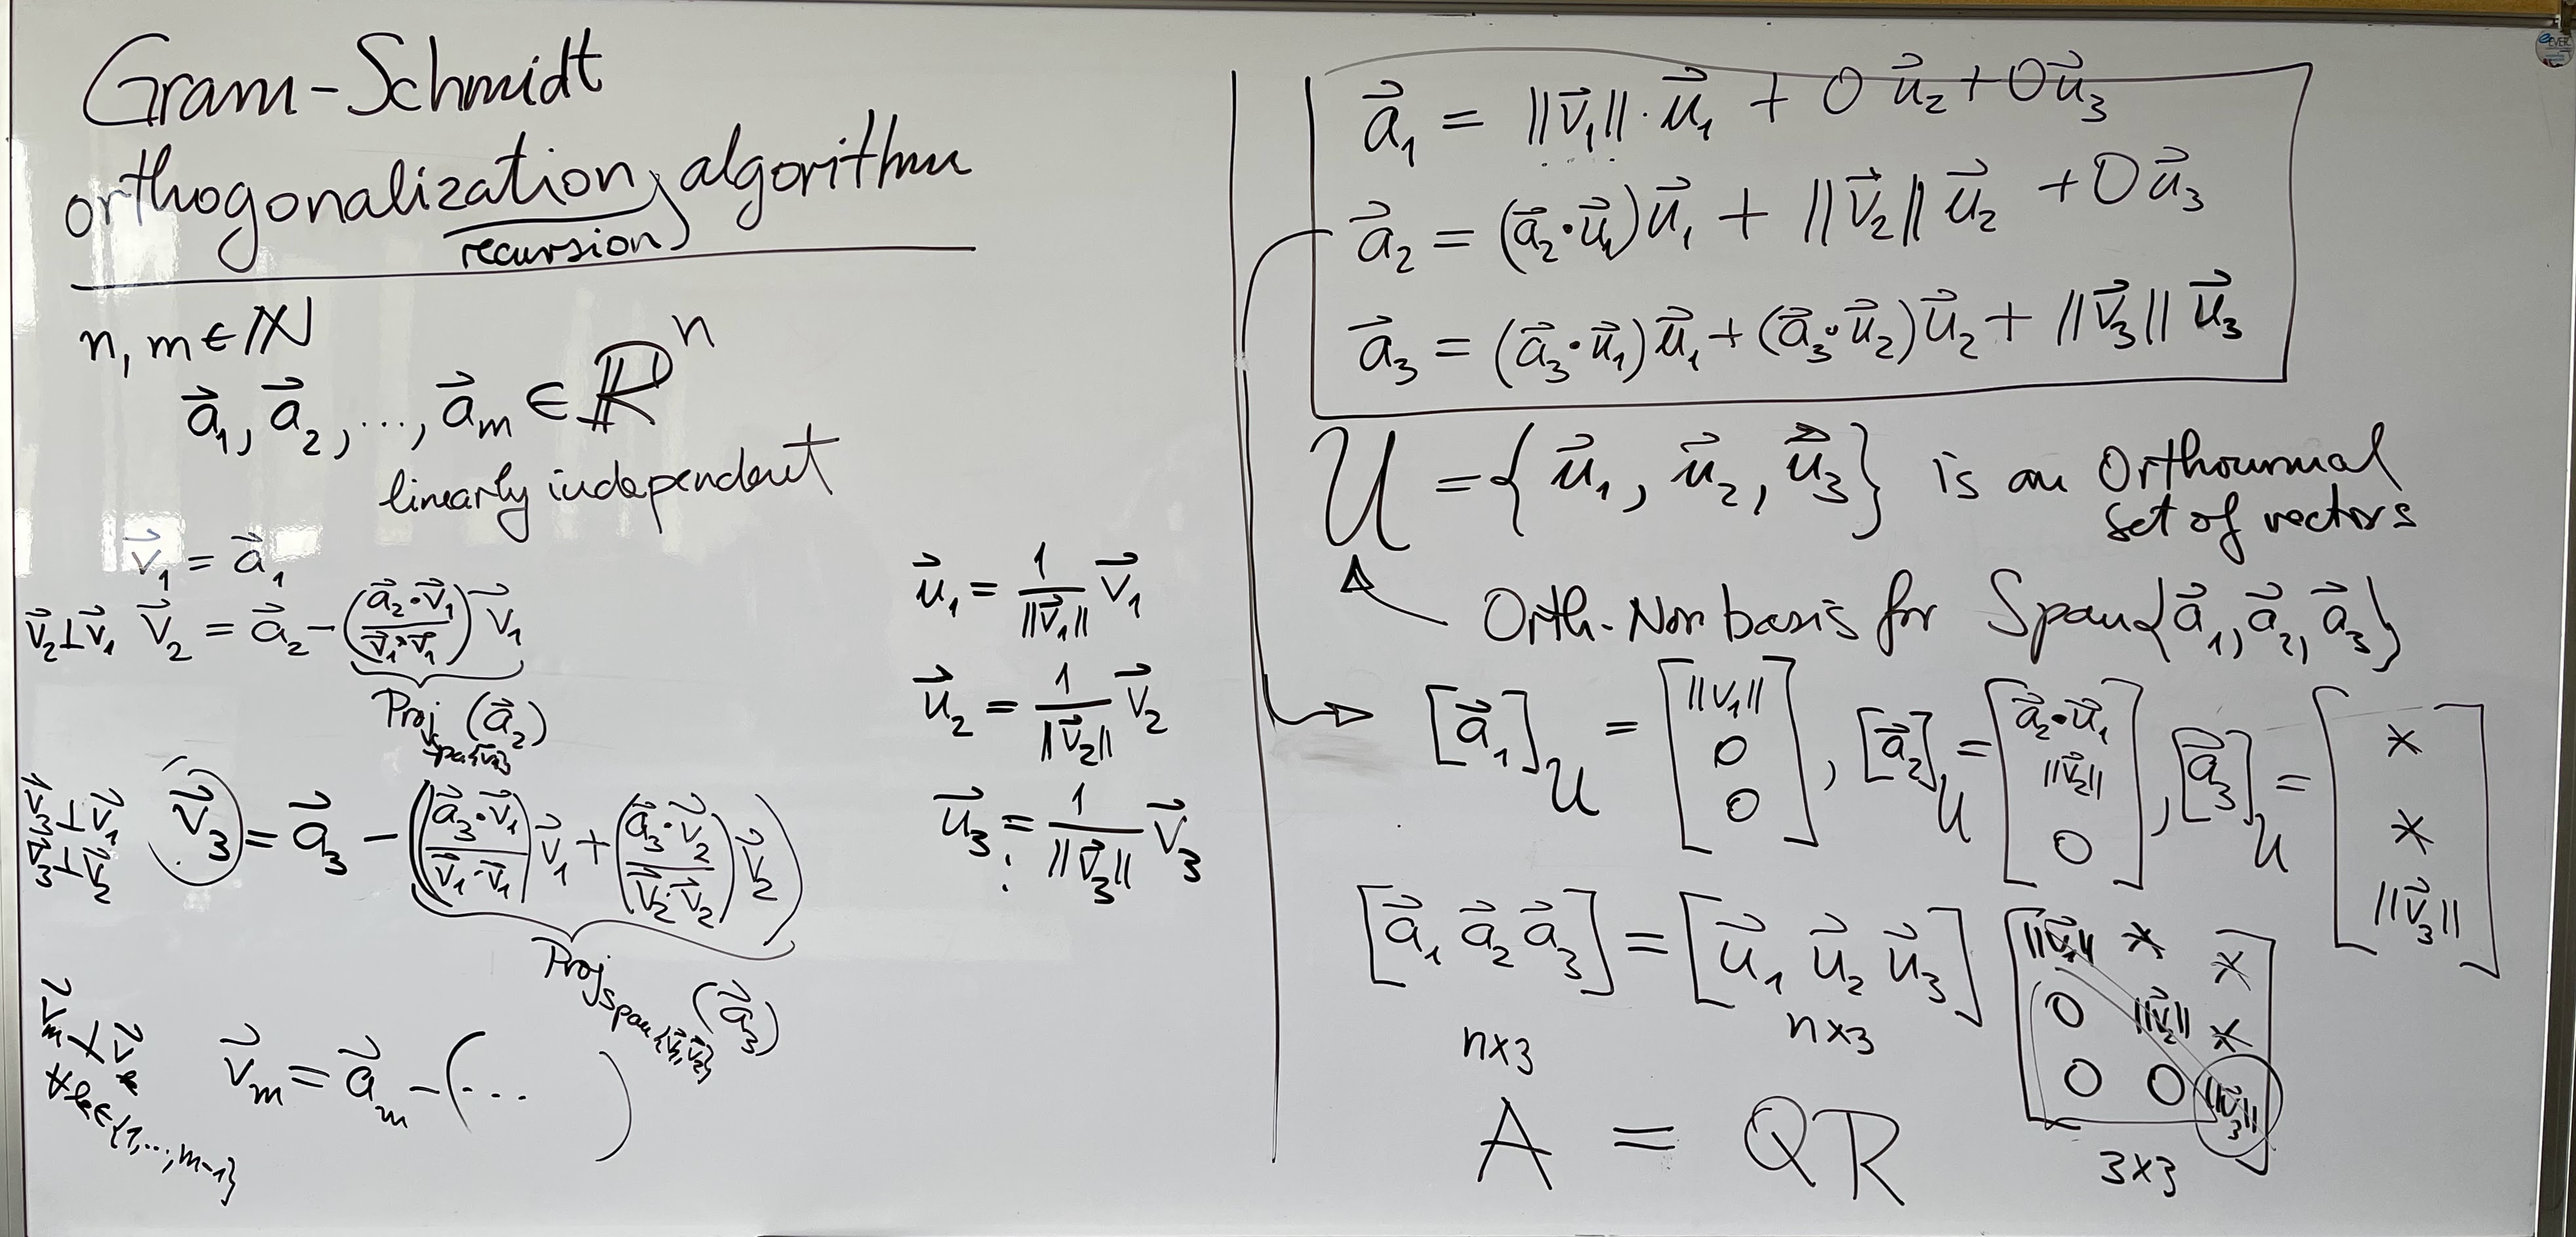 Gram-Schmidt
orthogonalization, algorithm
recursion
n, m ∈ ℕ
a⃗₁, a⃗₂, ..., a⃗ₘ ∈ ℝⁿ
linearly independent
v⃗₁ = a⃗₁
v⃗₂ ⊥ v⃗₁ v⃗₂ = a⃗₂ - ((a⃗₂·v⃗₁)/(v⃗₁·v⃗₁)) v⃗₁
Proj span{v⃗₁} (a⃗₂)
v⃗₃ ⊥ v⃗₁
v⃗₃ ⊥ v⃗₂
v⃗₃ = a⃗₃ - (((a⃗₃·v⃗₁)/(v⃗₁·v⃗₁)) v⃗₁ + ((a⃗₃·v⃗₂)/(v⃗₂·v⃗₂)) v⃗₂)
Proj span{v⃗₁,v⃗₂} (a⃗₃)
v⃗ₘ ⊥ v⃗ₖ
∀k∈{1,...,m-1}
v⃗ₘ = a⃗ₘ - (... )
u⃗₁ = 1/‖v⃗₁‖ v⃗₁
u⃗₂ = 1/‖v⃗₂‖ v⃗₂
u⃗₃ = 1/‖v⃗₃‖ v⃗₃
⋮
a⃗₁ = ‖v⃗₁‖·u⃗₁ + 0 u⃗₂ + 0 u⃗₃
a⃗₂ = (a⃗₂·u⃗₁) u⃗₁ + ‖v⃗₂‖ u⃗₂ + 0 u⃗₃
a⃗₃ = (a⃗₃·u⃗₁) u⃗₁ + (a⃗₃·u⃗₂) u⃗₂ + ‖v⃗₃‖ u⃗₃
U = {u⃗₁, u⃗₂, u⃗₃} is an Orthonormal
set of vectors
Orth-Nor basis for Span{a⃗₁, a⃗₂, a⃗₃}
[a⃗₁]U = [‖v₁‖ 0 0], [a⃗₂]U = [a⃗₂·u⃗₁ ‖v⃗₂‖ 0], [a⃗₃]U = [* * ‖v⃗₃‖]
[a⃗₁ a⃗₂ a⃗₃] = [u⃗₁ u⃗₂ u⃗₃] [‖v⃗₁‖ * *
0 ‖v⃗₂‖ *
0 0 ‖v⃗₃‖]
n×3 n×3 3×3
A = QR